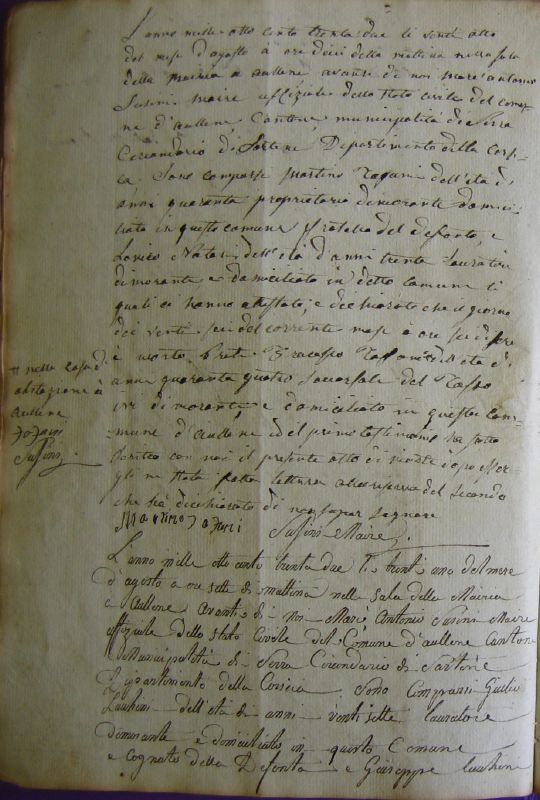 L'anno mille otto cento trenta due li venti otto
del mese d'agosto à ore dieci della mattina nella sala
della mairia à aullene avanti di noi Marc'antonio
Susini maire uffiziale dello stato civile del comu-
ne d'aullene, Cantone, municipalità di Serra
Circondario di Sartene, Dipartimento della Corsi-
ca. Sono comparsi Martino dell'età d'
anni quaranta proprietario dimorante domici-
liato in questo comune fratello del defonto, e
dell'età d'anni trenta lauratore
dimorante e domiciliato in detto comune li
quali ci hanno attestato, e dichiarato che il giorno
dei venti sei del corrente mese à ore sei di sera
è morto dell'età d'
anni quaranta quattro
ivi dimorante e domiciliato in questo com-
mune d'aullene ed il primo testimonio ha sotto
scritto con noi il presente atto di morte dopo aver-
gli ne stata fatta lettura del secondo
che ha dichiarato di non saper segnare
Martino
Susini Maire
# nella casa di
abitazione à
aullene
Susini
L'anno mille otto cento trenta due li trent'uno del mese
d'agosto a ore sette di mattina nella sala della Mairia
a Aullene avanti di noi Marc'Antonio Susini Maire
offiziale dello stato Civile del Comune d'aullene Cantone
Municipalità di Serra Circondario di Sartene
Dipartimento della Corsica. Sono Comparsi Giulio
dell'età di anni venti sette lauratore
dimorante e domiciliato in questo Comune
e cognato della Defonta e Giuseppe